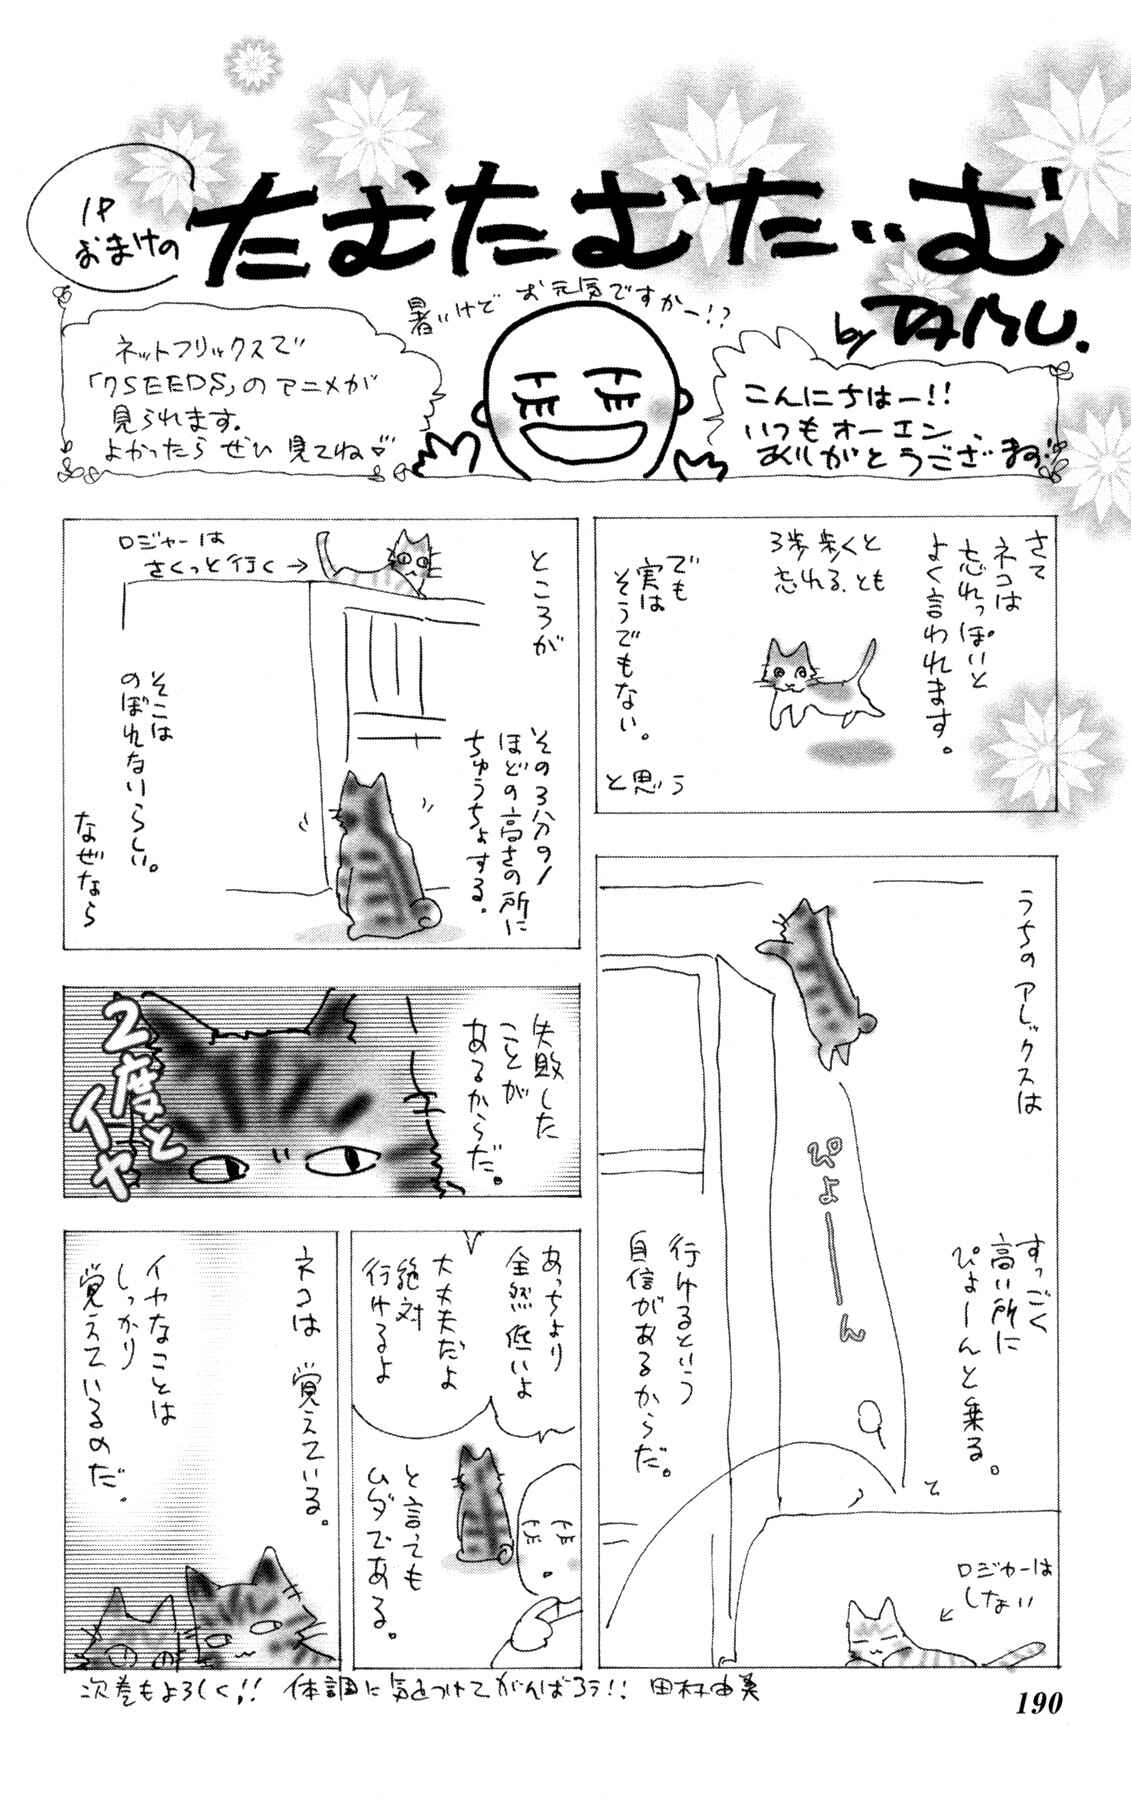 1P
おまけの
たむたむたいむ
by TAMU.
暑いけど お元気ですかー!?
こんにちはー!!
いつもオーエン、
ありがとうございます!
ネットフリックスで
「7SEEDS」のアニメが
見られます。
よかったら ぜひ 見てね♡
さて
ネコは
忘れっぽいと
よく言われます。
3歩歩くと
忘れる、とも
でも
実は
そうでもない。
と思う
うちのアレックスは
すっごく
高い所に
ぴょーんと乗る。
ぴょーん
行けるという
自信があるからだ。
ロジャーは
しない
ところが
その3分の1
ほどの高さの所に
ちゅうちょする。
ロジャーは
さくっと行く→
そこは
のぼれないらしい。
なぜなら
失敗した
ことが
あるからだ。
2度と
イヤ
あっちより
全然低いよ
大丈夫だよ
絶対
行けるよ
と言っても
ムダである。
ネコは 覚えている。
イヤなことは
しっかり
覚えているのだ。
次巻もよろしく!! 体調に気をつけてがんばろう!! 田村由美
190